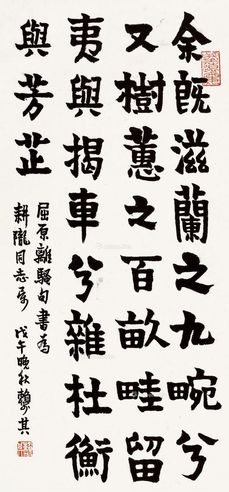 余既滋蘭之九畹兮
又樹蕙之百畝畦留
夷與揭車兮雜杜衡
與芳芷
屈原離騷句書為
耕隴同志属 戊午晚秋賴少其